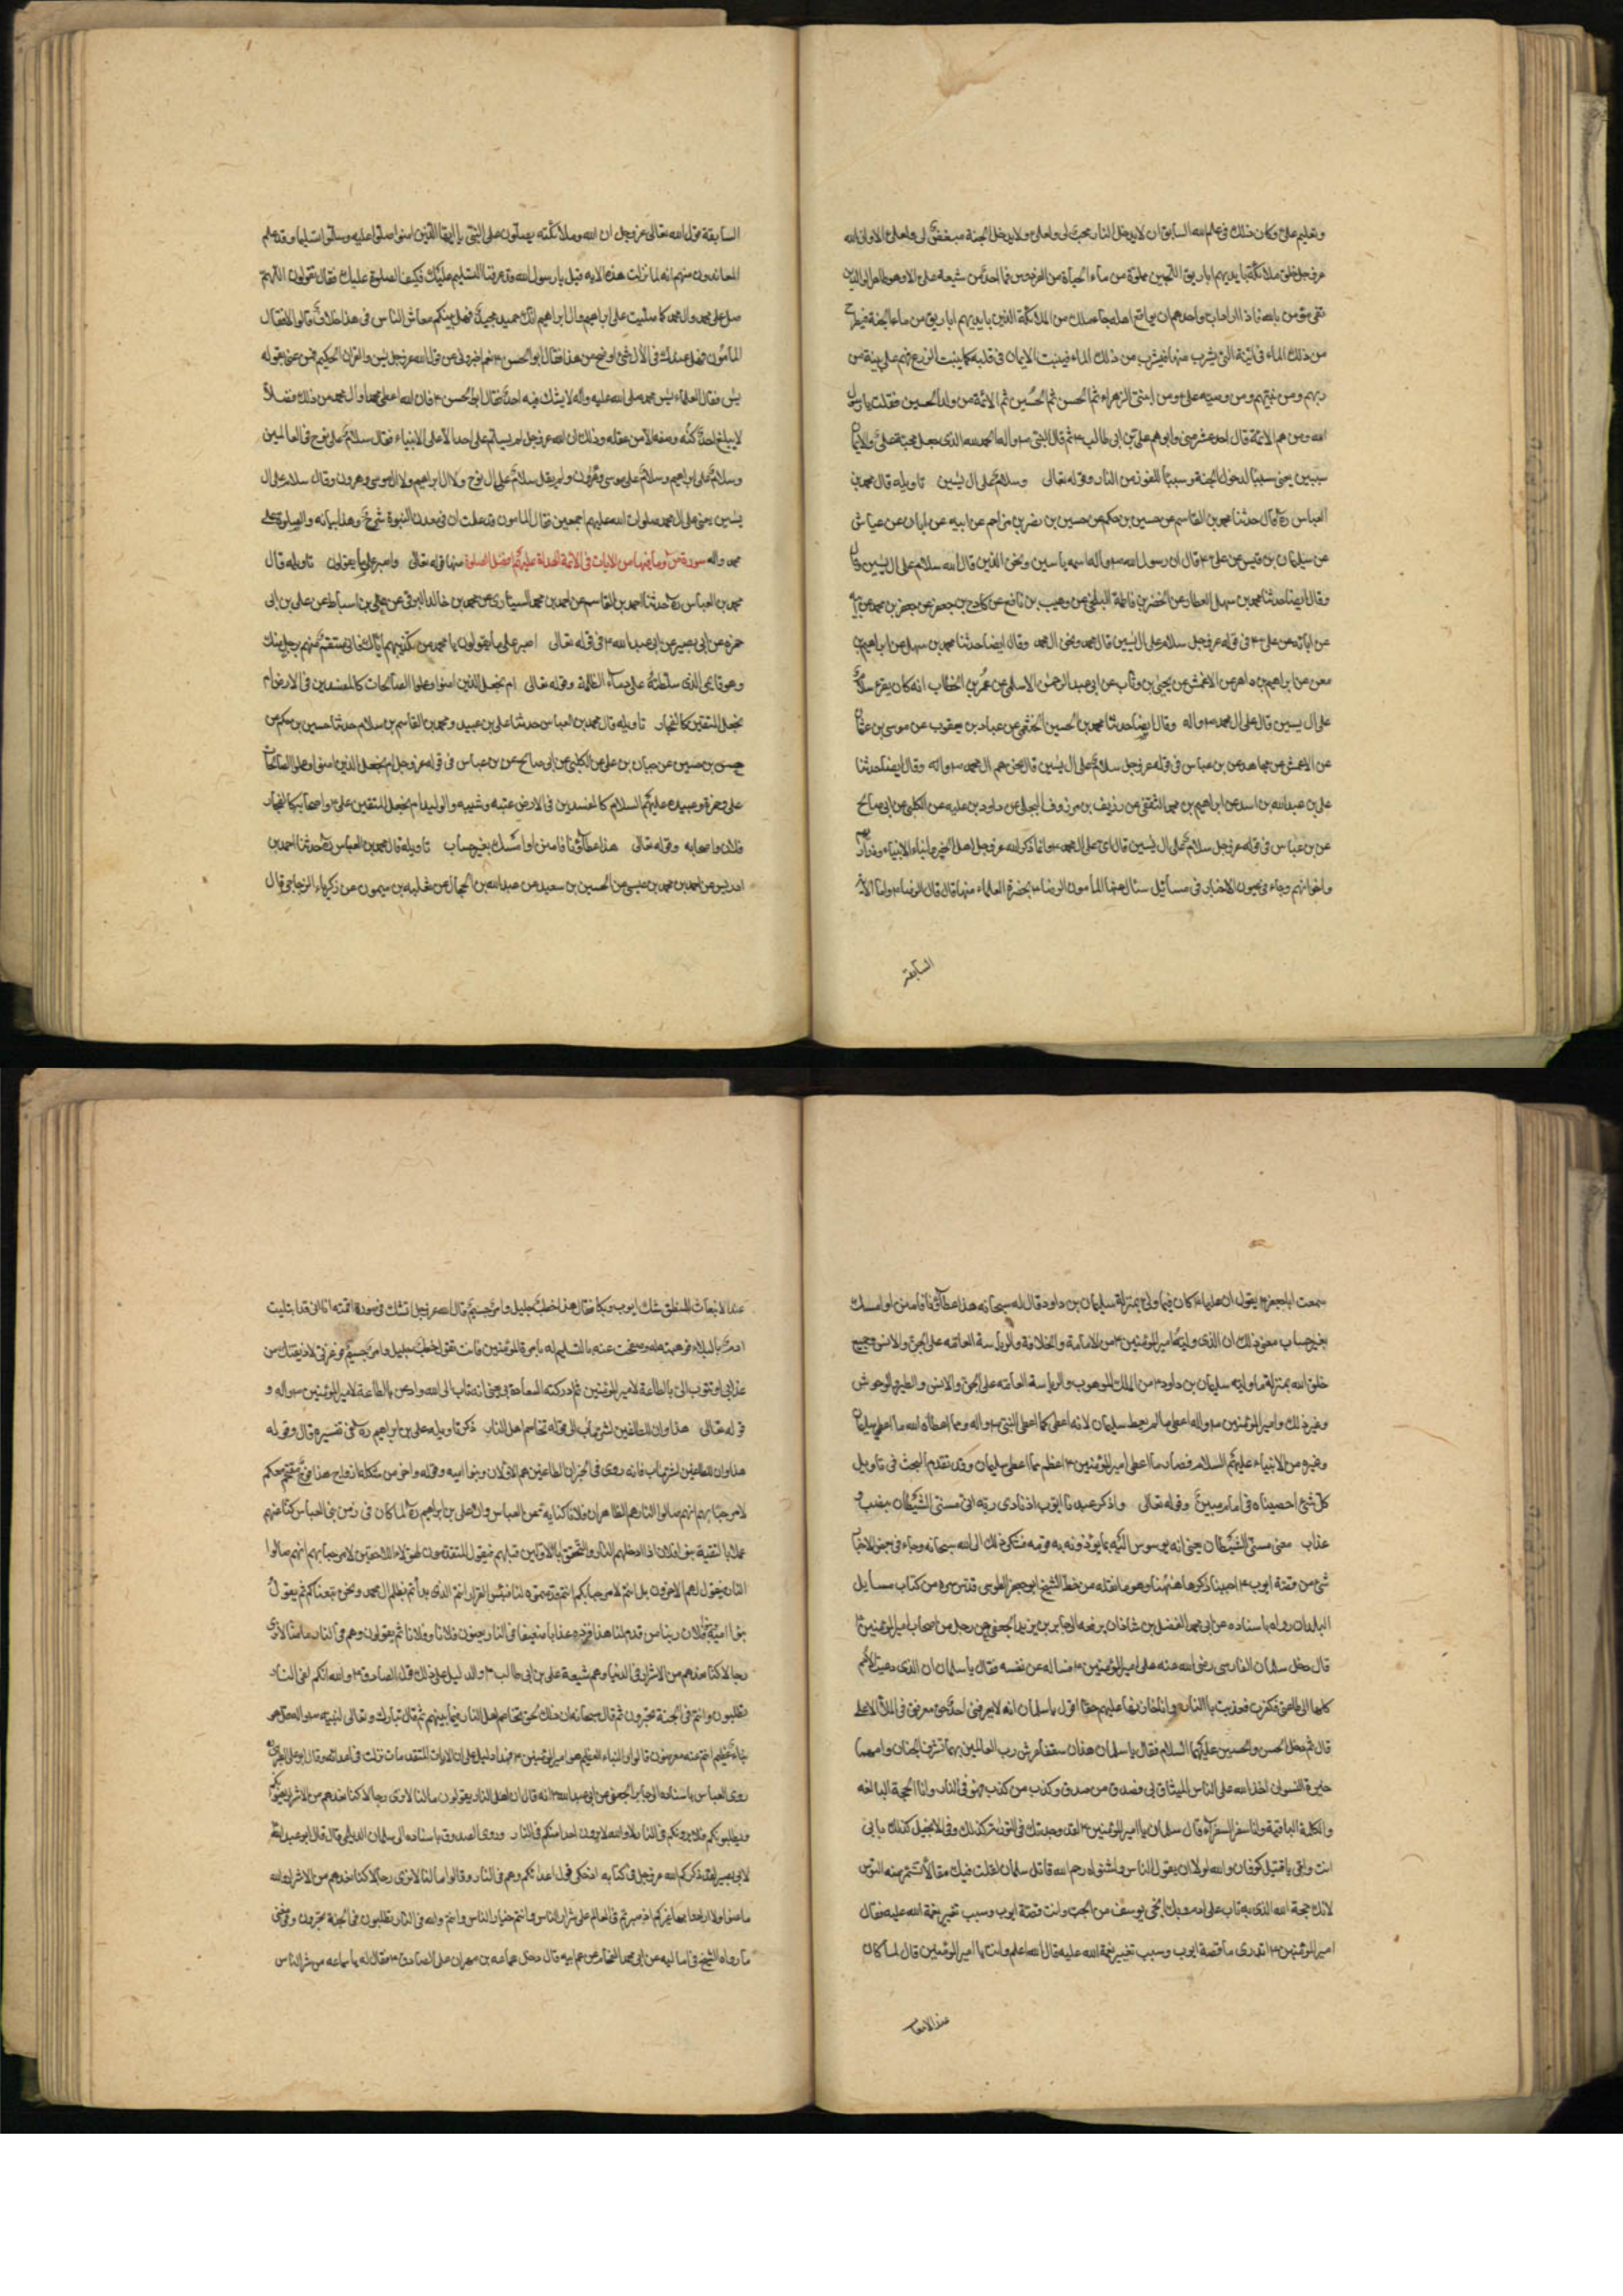 وبتعليم علی وكان ذلك فی علم الله السابق ان لا يدخل النار محب لی ولعلی ولا يدخل الجنة مبغض لی ولعلی الا وان الله
عز وجل خلق ملائكة بايديهم اباريق اللجين مملوة من ماء الحياة من الفردوس فما احد من شيعة علی الا وهو طاهر الوالدين
تقی نقی مؤمن بالله فاذا اراد اب واحدهم ان يواقع اهله جاء ملك من الملائكة الذين بايديهم اباريق من ماء الجنة فيطرح
من ذلك الماء فی انية التی يشرب منها فيشرب من ذلك الماء فينبت الايمان فی قلبه كما ينبت الزرع فهم علی بينة من
ربهم ومن نبيهم ومن وصيه علی ومن ابنتی الزهراء ثم الحسن ثم الحسين ثم الائمة من ولد الحسين فقلت يا رسول
الله ومن هم الائمة قال احد عشر منی وابوهم علی بن ابی طالب ثم قال النبی واله الحمد لله الذی جعل محبة علی والايمان
سببين يعنی سببا لدخول الجنة وسببا للفوز من النار وقوله تعالی وسلام علی ال يسين تاويله قال محمد بن
العباس ره قال حدثنا محمد بن القاسم عن حسين بن حكم عن حسين بن نصر بن مزاحم عن ابيه عن ابان عن عياش
عن سليمان بن قيس عن علی قال ان رسول الله واله اسمه ياسين ونحن الذين قال الله سلام علی ال يسين
وقال ايضا حدثنا محمد بن سهل العطار عن الخضر بن فاطمة البلخی عن وهيب بن نافع عن كادح بن جعفر عن جعفر بن محمد عن ابيه
عن ابائه عن علی فی قوله عز وجل سلام علی ال يسين قال محمد ونحن ال محمد وقال ايضا حدثنا محمد بن سهل عن ابراهيم بن
معن عن ابراهيم بن داهر عن الاعمش عن يحيی بن وثاب عن ابی عبد الرحمن الاسلمی عن عمر بن الخطاب انه كان يقرء سلام
علی ال يسين قال علی ال محمد واله وقال ايضا حدثنا محمد بن الحسين الخثعمی عن عباد بن يعقوب عن موسی بن عثمان
عن الاعمش عن مجاهد عن بن عباس فی قوله عز وجل سلام علی ال يسين قال نحن هم ال محمد واله وقال ايضا حدثنا
علی بن عبد الله بن اسد عن ابراهيم بن محمد الثقفی عن رزيق بن مرزوق البجلی عن داود بن عليه عن الكلبی عن ابی صالح
عن بن عباس فی قوله عز وجل سلام علی ال يسين قال ای علی ال محمد وانما ذكر الله عز وجل اهل الخير وابناء الانبياء وذراريهم
واخوانهم وجاء فی عيون الاخبار فی مسائل سئال عنها المامون الرضا بحضرة العلماء منها قال قال الرضا واما الاية
السابعة
السابعة قول الله تعالی عز وجل ان الله وملائكته يصلون علی النبی يا ايها الذين امنوا صلوا عليه وسلموا تسليما وقد علم
المعاندون منهم انه لما نزلت هذه الايه قيل يا رسول الله قد عرفنا التسليم عليك فكيف الصلوة عليك فقال تقولون اللهم
صل علی محمد وال محمد كما صليت علی ابراهيم وال ابراهيم انك حميد مجيد فهل بينكم معاش الناس فی هذا خلاف قالوا لا فقال
المامون فهل عندك فی الال شئ اوضح من هذا فقال ابو الحسن نعم اخبرونی عن قول الله عز وجل يس والقران الحكيم فمن عنی بقوله
يس فقال العلماء يس محمد صلی الله عليه واله لا يشك فيه احد فقال ابو الحسن فان الله اعطی محمدا وال محمد من ذلك فضلا
لا يبلغ احد كنه وصفه الا من عقله وذلك ان الله عز وجل لم يسلم علی احد الا علی الانبياء فقال سلام علی نوح فی العالمين
وسلام علی ابراهيم وسلام علی موسی وهرون ولم يقل سلام علی ال نوح ولا ال ابراهيم ولا ال موسی وهرون وقال سلام علی ال
يسين يعنی علی ال محمد صلوات الله عليهم اجمعين فقال المامون قد علمت ان فی معدن النبوة شرح وهذا بيانه والصلوة علی
محمد واله سورة ص وما فيها من الايات فی الائمة الهداة عليهم افضل الصلوة منها قوله تعالی واصبر علی ما يقولون تاويله قال
محمد بن العباس ره حدثنا احمد بن القاسم عن احمد بن محمد السياری عن محمد بن خالد البرقی عن علی بن اسباط عن علی بن ابی
حمزه عن ابی بصير عن ابی عبد الله فی قوله تعالی اصبر علی ما يقولون يا محمد من تكذيبهم اياك فانی منتقم منهم برجل منك
وهو قائمی الذی سلطته علی دماء الظلمة وقوله تعالی ام نجعل الذين امنوا وعملوا الصالحات كالمفسدين فی الارض ام
نجعل المتقين كالفجار تاويله قال محمد بن العباس حدثنا علی بن عبيد ومحمد بن القاسم بن سلام حدثنا حسين بن حكم عن
حسن بن حسين عن حيان بن علی عن الكلبی عن ابی صالح عن بن عباس فی قوله عز وجل ام نجعل الذين امنوا وعملوا الصالحات
علی وحمزة وعبيده عليهم السلام كالمفسدين فی الارض عتبه وشيبه والوليد ام نجعل المتقين علی واصحابه كالفجار
فلان واصحابه وقوله تعالی هذا عطاؤنا فامنن او امسك بغير حساب تاويله قال محمد بن العباس ره حدثنا احمد بن
ادريس عن احمد بن محمد بن عيسی عن الحسين بن سعيد عن عبد الله بن الحجال عن ثعلبه بن ميمون عن زكرياء الزجاجی قال
سمعت ابا جعفر يقول ان عليا كان فيما ولی بمنزلة سليمان بن داود قال له سبحانه هذا عطاؤنا فامنن او امسك
بغير حساب معنی ذلك ان الذی وليه امير المؤمنين من الامامة والخلافة والرياسة العامه علی الجن والانس وجميع
خلق الله بمنزلة ما وليه سليمان بن داود من الملك الموهوب والرياسة العامه علی الجن والانس والطير والوحوش
وغير ذلك وامير المؤمنين واله اعطی ما لم يعط سليمان لانه اعطی كما اعطی النبی واله ومما اعطاه الله ما اعطی سليمان
وغيره من الانبياء عليهم السلام فصار ما اعطی امير المؤمنين اعظم مما اعطی سليمان وقد تقدم البحث فی تاويل
كل شئ احصيناه فی امام مبين وقوله تعالی واذكر عبدنا ايوب اذ نادی ربه انی مسنی الشيطان بنصب و
عذاب معنی مسنی الشيطان يعنی انه يوسوس اليه بما يوذونه به قومه فشكی ذلك الی الله سبحانه وجاء فی بعض الاخبار
شئ من قصة ايوب احببنا ذكرها ههنا وهو ما نقله من خط الشيخ ابو جعفر الطوسی قدس سره من كتاب مسايل
البلدان رواه باسناده عن ابی محمد الفضل بن شاذان يرفعه الی جابر بن يزيد الجعفی عن رجل من اصحاب امير المؤمنين
قال دخل سلمان الفارسی رضی الله عنه علی امير المؤمنين فساله عن نفسه فقال يا سلمان ان الذی دعيت الامم
كلها الی طاعتی فكفرت فعذبت بالنار وانا خازنها عليهم حقا اقول يا سلمان انه لا يعرفنی احد حق معرفتی فی الملا الاعلی
قال ثم دخل الحسن والحسين عليهما السلام فقال يا سلمان هذان شنفا عرش رب العالمين بهما تشرق الجنان وامهما
خيرة النسوان اخذ الله علی الناس الميثاق بی فصدق من صدق وكذب من كذب فهو فی النار وانا الحجة البالغه
والكلمة الباقية وانا سفر السفراء قال سلمان يا امير المؤمنين لقد وجدتك فی التورية كذلك وفی الانجيل كذلك بابی
انت وامی يا قتيل كوفان والله لولا ان يقول الناس واشوقاه رحم الله قاتل سلمان لقلت فيك مقالا تشمئز منه النفوس
لانك حجة الله الذی به تاب علی ادم وبك انجی يوسف من الجب وانت قصة ايوب وسبب تغيير نعمة الله عليه فقال
امير المؤمنين اتدری ما قصة ايوب وسبب تغيير نعمة الله عليه قال الله اعلم وانت يا امير المؤمنين قال لما كان
عند الانبعاث
عند الانبعاث للمنطق شك ايوب وبكا فقال هذا خطب جليل وامر جسيم قال الله عز وجل اتشك فی صورة اقمته انا انی قد ابتليت
ادم بالبلاء فوهبته له وصفحت عنه بالتسليم له بامرة المؤمنين فانت تقول خطب جليل وامر جسيم فوعزتی لاذيقنك من
عذابی او تتوب الی بالطاعة لامير المؤمنين ثم ادركته السعادة بی يعنی انه تاب الی الله واذعن بالطاعة لامير المؤمنين واله و
قوله تعالی هذا وان للطاغين لشر مآب الی قوله تخاصم اهل النار ذكر تاويله علی بن ابراهيم ره فی تفسيره قال وقوله
هذا وان للطاغين لشر مآب فانه روی فی الخبر ان الطاغين هم الاولان وبنو اميه وقوله واخر من شكله ازواج هذا فوج مقتحم معكم
لا مرحبا بهم انهم صالوا النار هم الظاهران فلانا كنايه عن العباس وان علی بن ابراهيم ره لما كان فی زمن بنی العباس كنا عنهم
عملا بالتقية بنو فلان اذا ادخلهم النار والتحقوا بالاولين قبلهم فيقول المتقدمون لهؤلاء اللاحقين لا مرحبا بهم انهم صالوا
النار فيقول لهم الاخرون بل انتم لا مرحبا بكم انتم قدمتموه لنا فبئس القرار انتم الذی بدأتم بظلم ال محمد ونحن تبعناكم ثم يقول
بنو امية فلان ربنا من قدم لنا هذا فزده عذابا ضعيفا فی النار يعنون فلانا وفلانا ثم يقولون وهم فی النار ما لنا لا نری
رجالا كنا نعدهم من الاشرار فی الدنيا وهم شيعة علی بن ابی طالب والدليل علی ذلك قول الصادق والله انكم لفی النار
تطلبون وانتم فی الجنة تحبرون ثم قال سبحانه ان ذلك لحق تخاصم اهل النار فيما بينهم ثم قال تبارك وتعالی لنبيه واله قل هو
نباء عظيم انتم عنه معرضون قالوا والنباء العظيم هو امير المؤمنين فهذا دليل علی ان الايات المتقدمات نزلت فی اعدائه وقال ابو علی الطبرسی
روی العباس باسناده الی جابر الجعفی عن ابی عبد الله انه قال ان اهل النار يقولون ما لنا لا نری رجالا كنا نعدهم من الاشرار يعنونكم
ويطلبونكم فلا يرونكم فی النار لا والله لا يرون احدا منكم فی النار وروی الصدوق باسناده الی سلمان الديلمی قال قال ابو عبد الله
لابی بصير لقد ذكركم الله عز وجل فی كتابه اذ حكی قول اعدائكم وهم فی النار وقالوا ما لنا لا نری رجالا كنا نعدهم من الاشرار والله
ما عنوا ولا ارادوا بهذا غيركم اذ صرتم فی العالم علی شرار الناس وانتم خيار الناس وانتم والله فی النار تطلبون فی الجنة تحبرون وفی معنی
ما رواه الشيخ فی اماليه عن ابی محمد الفحام عن عم ابيه قال دخل سماعه بن مهران علی الصادق فقال له يا سماعه من شر الناس